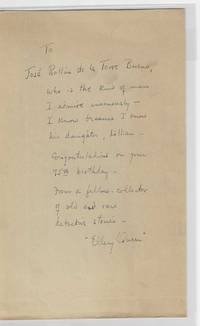 To
José Rollin de la Torre Bueno,
who is the kind of man
I admire enormously —
I know because I know
his daughter, Lillian —
Congratulations on your
75th birthday —
From a fellow-collector
of old and rare
detective stories —
"Ellery Queen"